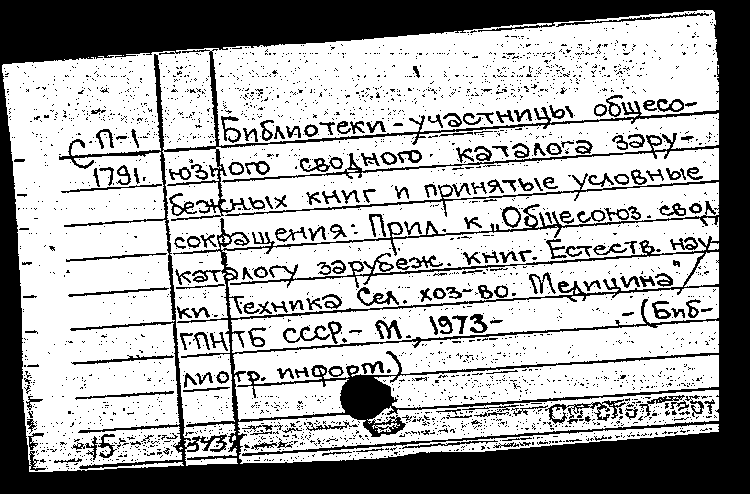 С П-1 Библиотеки-участницы общесо-
1791. юзного сводного каталога зару-
бежных книг и принятые условные
сокращения: Прил. к „Общесоюз. свод
каталогу зарубеж. книг. Естеств. нау-
ки. Техника. Сел. хоз-во. Медицина"/
ГПНТБ СССР.- М., 1973- .-(Биб-
лиогр. информ.)
См. след. карт.
15